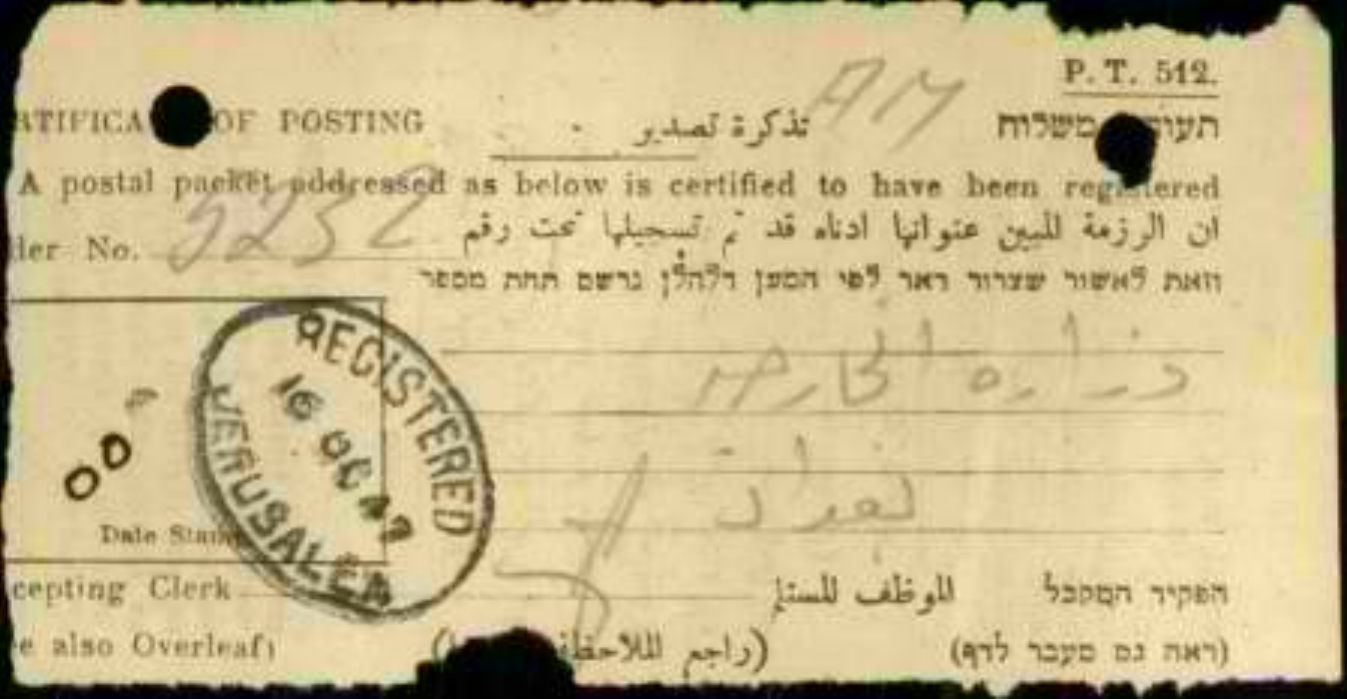 P. T. 512.
RTIFICA OF POSTING تذكرة تصدير AM תעוד משלוח
A postal packet addressed as below is certified to have been registered
der No. 5232 ان الرزمة المبين عنوانها ادناه قد تم تسجيلها تحت رقم
וזאת לאשור שצרור דאר לפי המען דלהלן נרשם תחת מספר
وزاره الخارجيه
بغداد
REGISTERED
16 OC 47
JERUSALEM
00
Date Stam
cepting Clerk الموظف المستلم הפקיד המקבל
e also Overleaf) (راجع الملاحظة (ראה גם מעבר לדף)